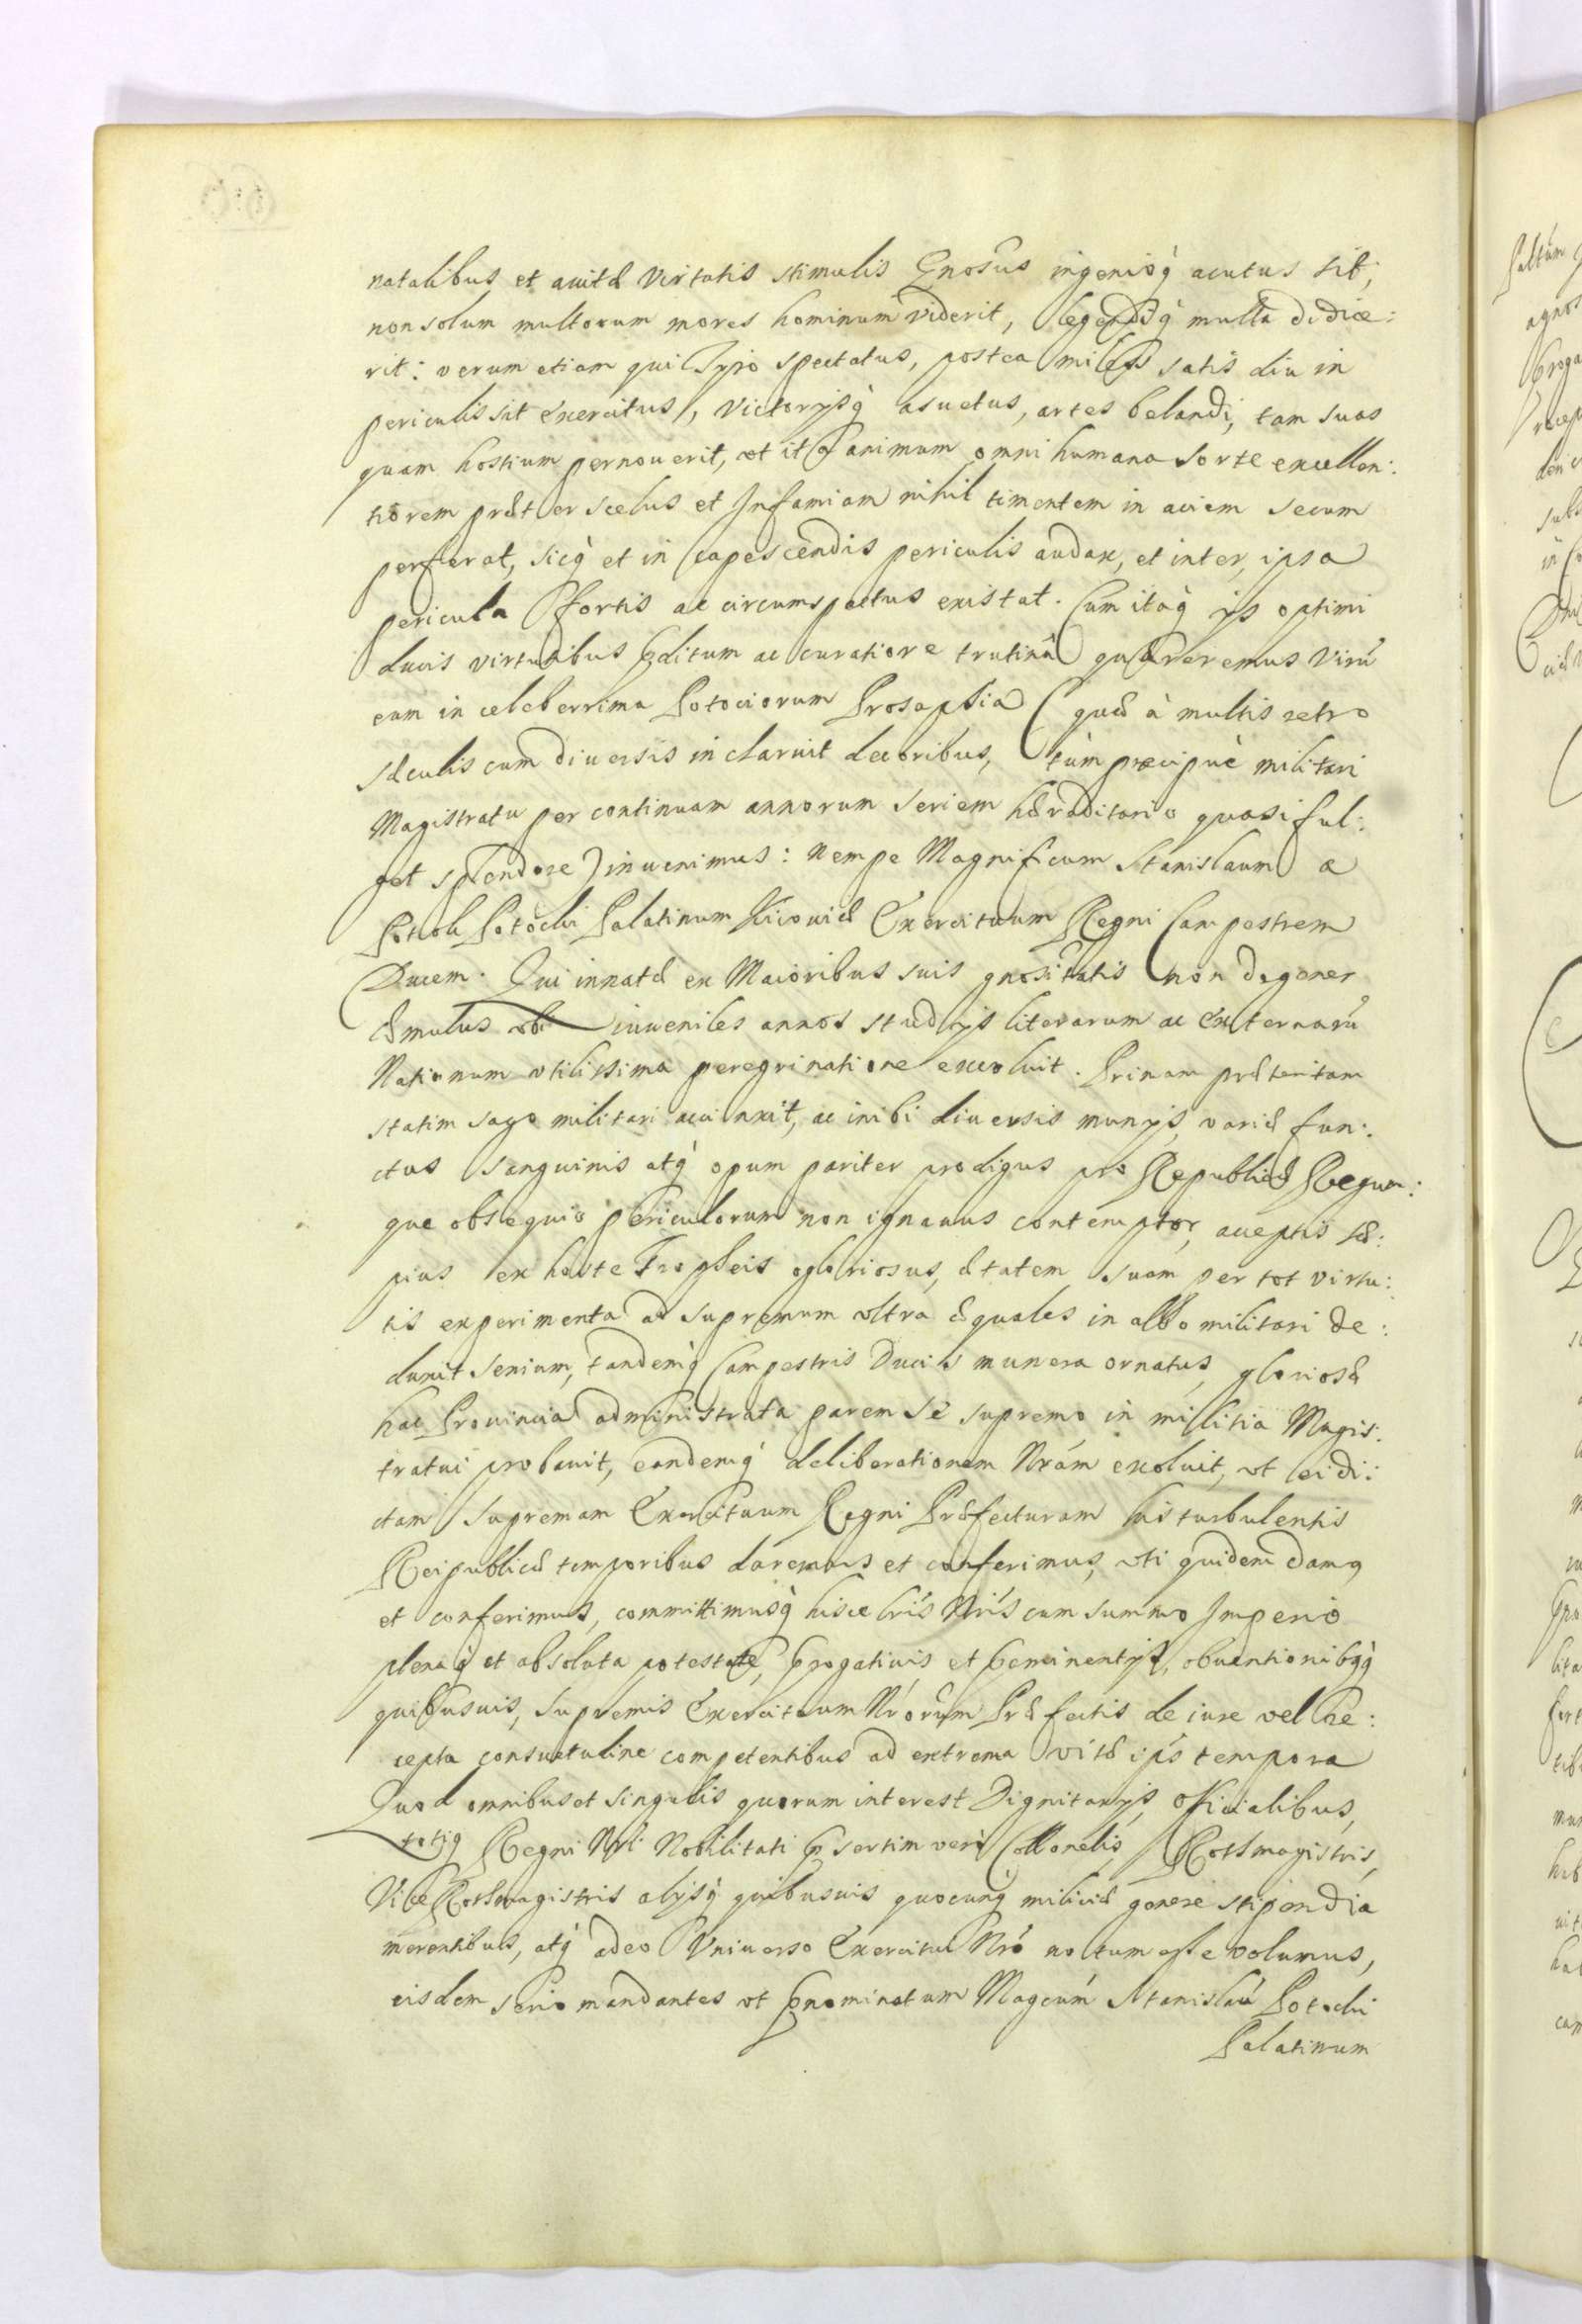 natalibus et auitæ Virtutis stimulis Gnosus ingenioq̀ acutus sit,
non solum multorum mores hominum viderit, legendoq̀ multa didice:
rit: verum etiam qui Tyro spectatus, postea miles satis diu in
periculis sit exercitus, Victorysq̀ asuetus, artes belandi, tam suas
quam hostium pernouerit, ut ita animum omni humana sorte excellen:
tiorem præter scelus et Infamiam nihil timentem in aciem secum
perferat, sicq̀ et in capescendis periculis audax, et inter ipsa
pericula fortis ac circumspectus existat. Cum itaq̀ ijs optimi
ducis virtutibus præditum ac curatiore trutina quæreremus Virũ
eum in celeberrima Potociorum Prosaphia (quæ à multis retro
sæculis cum diuersis inclaruit decoribus, tùm præcipuè militari
Magistratu per continuam annorum seriem hæraditario quasi ful:
get splendore) inuenimus: nempe Magnificum Stanislaum a
Potok Potocki Palatinum Kiiouiæ Exercituum Regni Campestrem
Ducem. Qui innatæ ex Maioribus suis gnositatis non degener
æmulus ubi iuueniles annos studijs literarum ac externarũ
Nationum utilissima peregrinatione excoluit. Primam prætentam
statim sago militari accinxit, ac inibi diuersis munijs, varié fun:
ctus sanguinis atq̀ opum pariter prodigus pro Republica Regum:
que obsequio periculorum non ignauus contemptor, acceptis sæ:
pius ex hoste Tropheis gloriosus, ætatem suam per tot virtu:
tis experimenta ad supremum ultra æquales in albo militari de:
duxit senium, tandemq̀ Campestris Ducis munera ornatus, gloriosæ
hac Prouincia administrata parem se supremo in militia Magis:
tratui probauit, eandemq̀ deliberationem Nrám exoluit, ut ei di:
ctam Supremam Exercituum Regni Præfecturam his turbulentis
Reipublicæ temporibus daremus et conferimus, uti quidem damq
et conferimus, committimusq̀ hisce lrís Nrís cum summo Imperio
plenaq̀ et absoluta potestate, progatiuis et preeminentijs, obuentionibqq̀
quibusuis, Supremis Exercituum Nrórum Præfectis de iure vel re:
cepta consuetudine competentibus ad extrema vitæ ipś tempora
Quod omnibus et singulis quorum interest Dignitarijs, Officialibus,
totiq Regni Nrí Nobilitati psertim verò Collonelis, Rothmagistris,
Vice Rothmagistris alysq̀ quibusuis quocunq̀ miliciæ genere stipendia
merentibus, atq̀ adeo Vniuerso Exercitui Nró notum esse volumus,
eisdem serio mandantes ut pnominatum Magcúm Stanislaũ Potocki
Palatinum